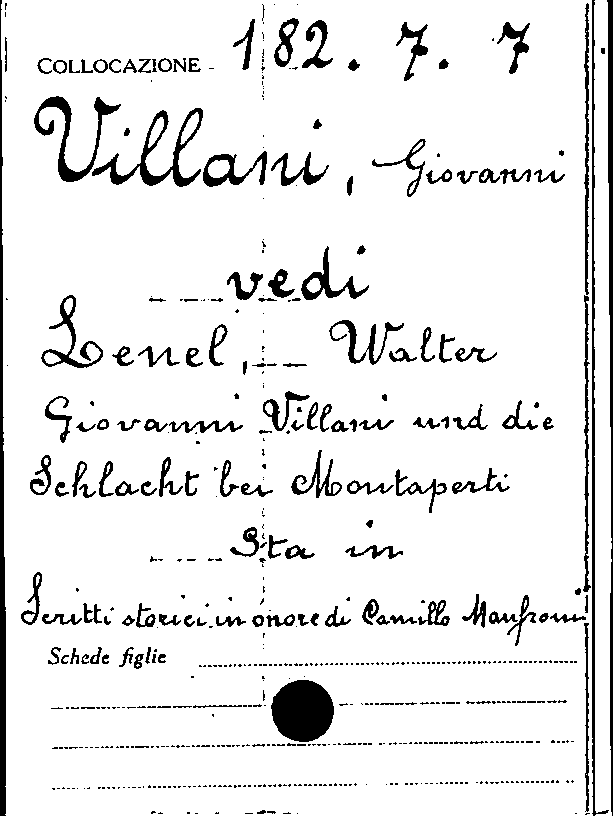 COLLOCAZIONE - 182. 7. 7
Villani, Giovanni
vedi
Lenel, Walter
Giovanni Villani und die
Schlacht bei Montaperti
Sta in
Scritti storici in onore di Camillo Manfroni
Schede figlie